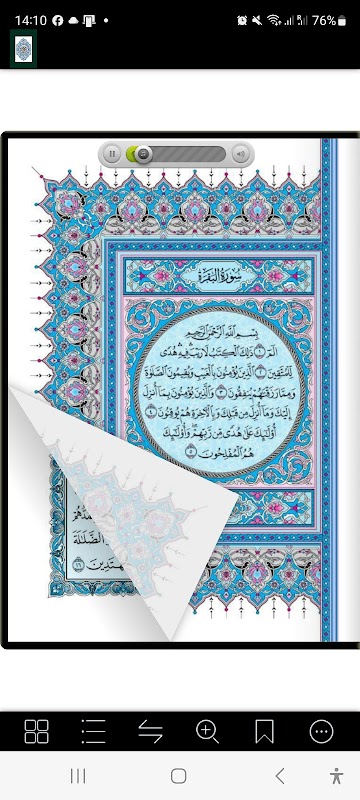 14:10
76%
سُورَةُ البَقَرَة
بِسْمِ اللَّهِ الرَّحْمَٰنِ الرَّحِيمِ
الٓمٓ ١ ذَٰلِكَ الْكِتَٰبُ لَا رَيْبَ فِيهِ هُدًى
لِّلْمُتَّقِينَ ٢ الَّذِينَ يُؤْمِنُونَ بِالْغَيْبِ وَيُقِيمُونَ الصَّلَوٰةَ
وَمِمَّا رَزَقْنَٰهُمْ يُنفِقُونَ ٣ وَالَّذِينَ يُؤْمِنُونَ بِمَا أُنزِلَ
إِلَيْكَ وَمَا أُنزِلَ مِن قَبْلِكَ وَبِالْآخِرَةِ هُمْ يُوقِنُونَ ٤
أُولَٰئِكَ عَلَىٰ هُدًى مِّن رَّبِّهِمْ وَأُولَٰئِكَ
هُمُ الْمُفْلِحُونَ ٥
الضَّلَٰلَةَ
مُهْتَدِينَ ١٦